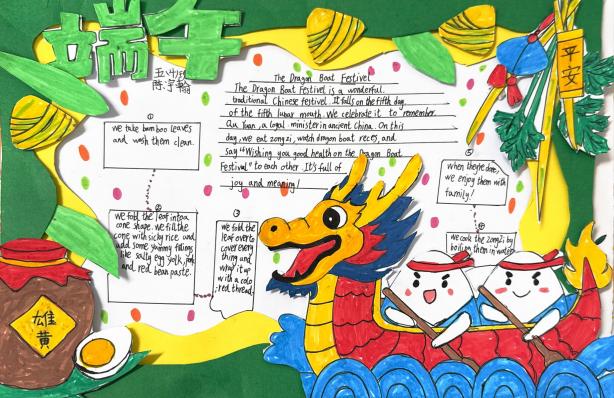 端午
五(4)班
陈宇翰
The Dragon Boat Festivel
The Dragon Boat Festivel is a wonderful.
traditional Chinese festivel. It falls on the fifth day.
of the fifth lunar month. We celebrate it to remember.
Qu Yuan, a loyal minister in ancient China. On this
day, we eat zongzi, watch dragon boat races, and
say "Wishing you good health on the Dragon Boat
Festival" to each other. It's full of
joy and meaning!
①
we take bamboo leaves
and wash them clean.
②
we fold the leaf into a
cone shape. we fill the
cone with sticky rice and
add some yummy fillings
like salty egg yolk, pork
and red bean paste.
③
we fold the
leaf over to
cover every
thing and
wrap it up
with a colo
red thread.
④
we cook the zongzi by
boiling them in water.
⑤
when they're done,
we enjoy them with
family!
平安
雄
黄